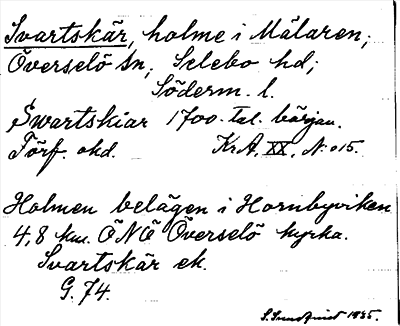 Svartskär, holme i Mälaren;
Överselö sn; Selebo hd;
Söderm. l.
Swartskiar 1700-tal. början.
Förf. okd. KrA, XX, N:o 15.
Holmen belägen i Hornbyviken
4,8 km. ÖNÖ Överselö kyrka.
Svartskär ek.
G. 74.
S. Sundqvist 1935.